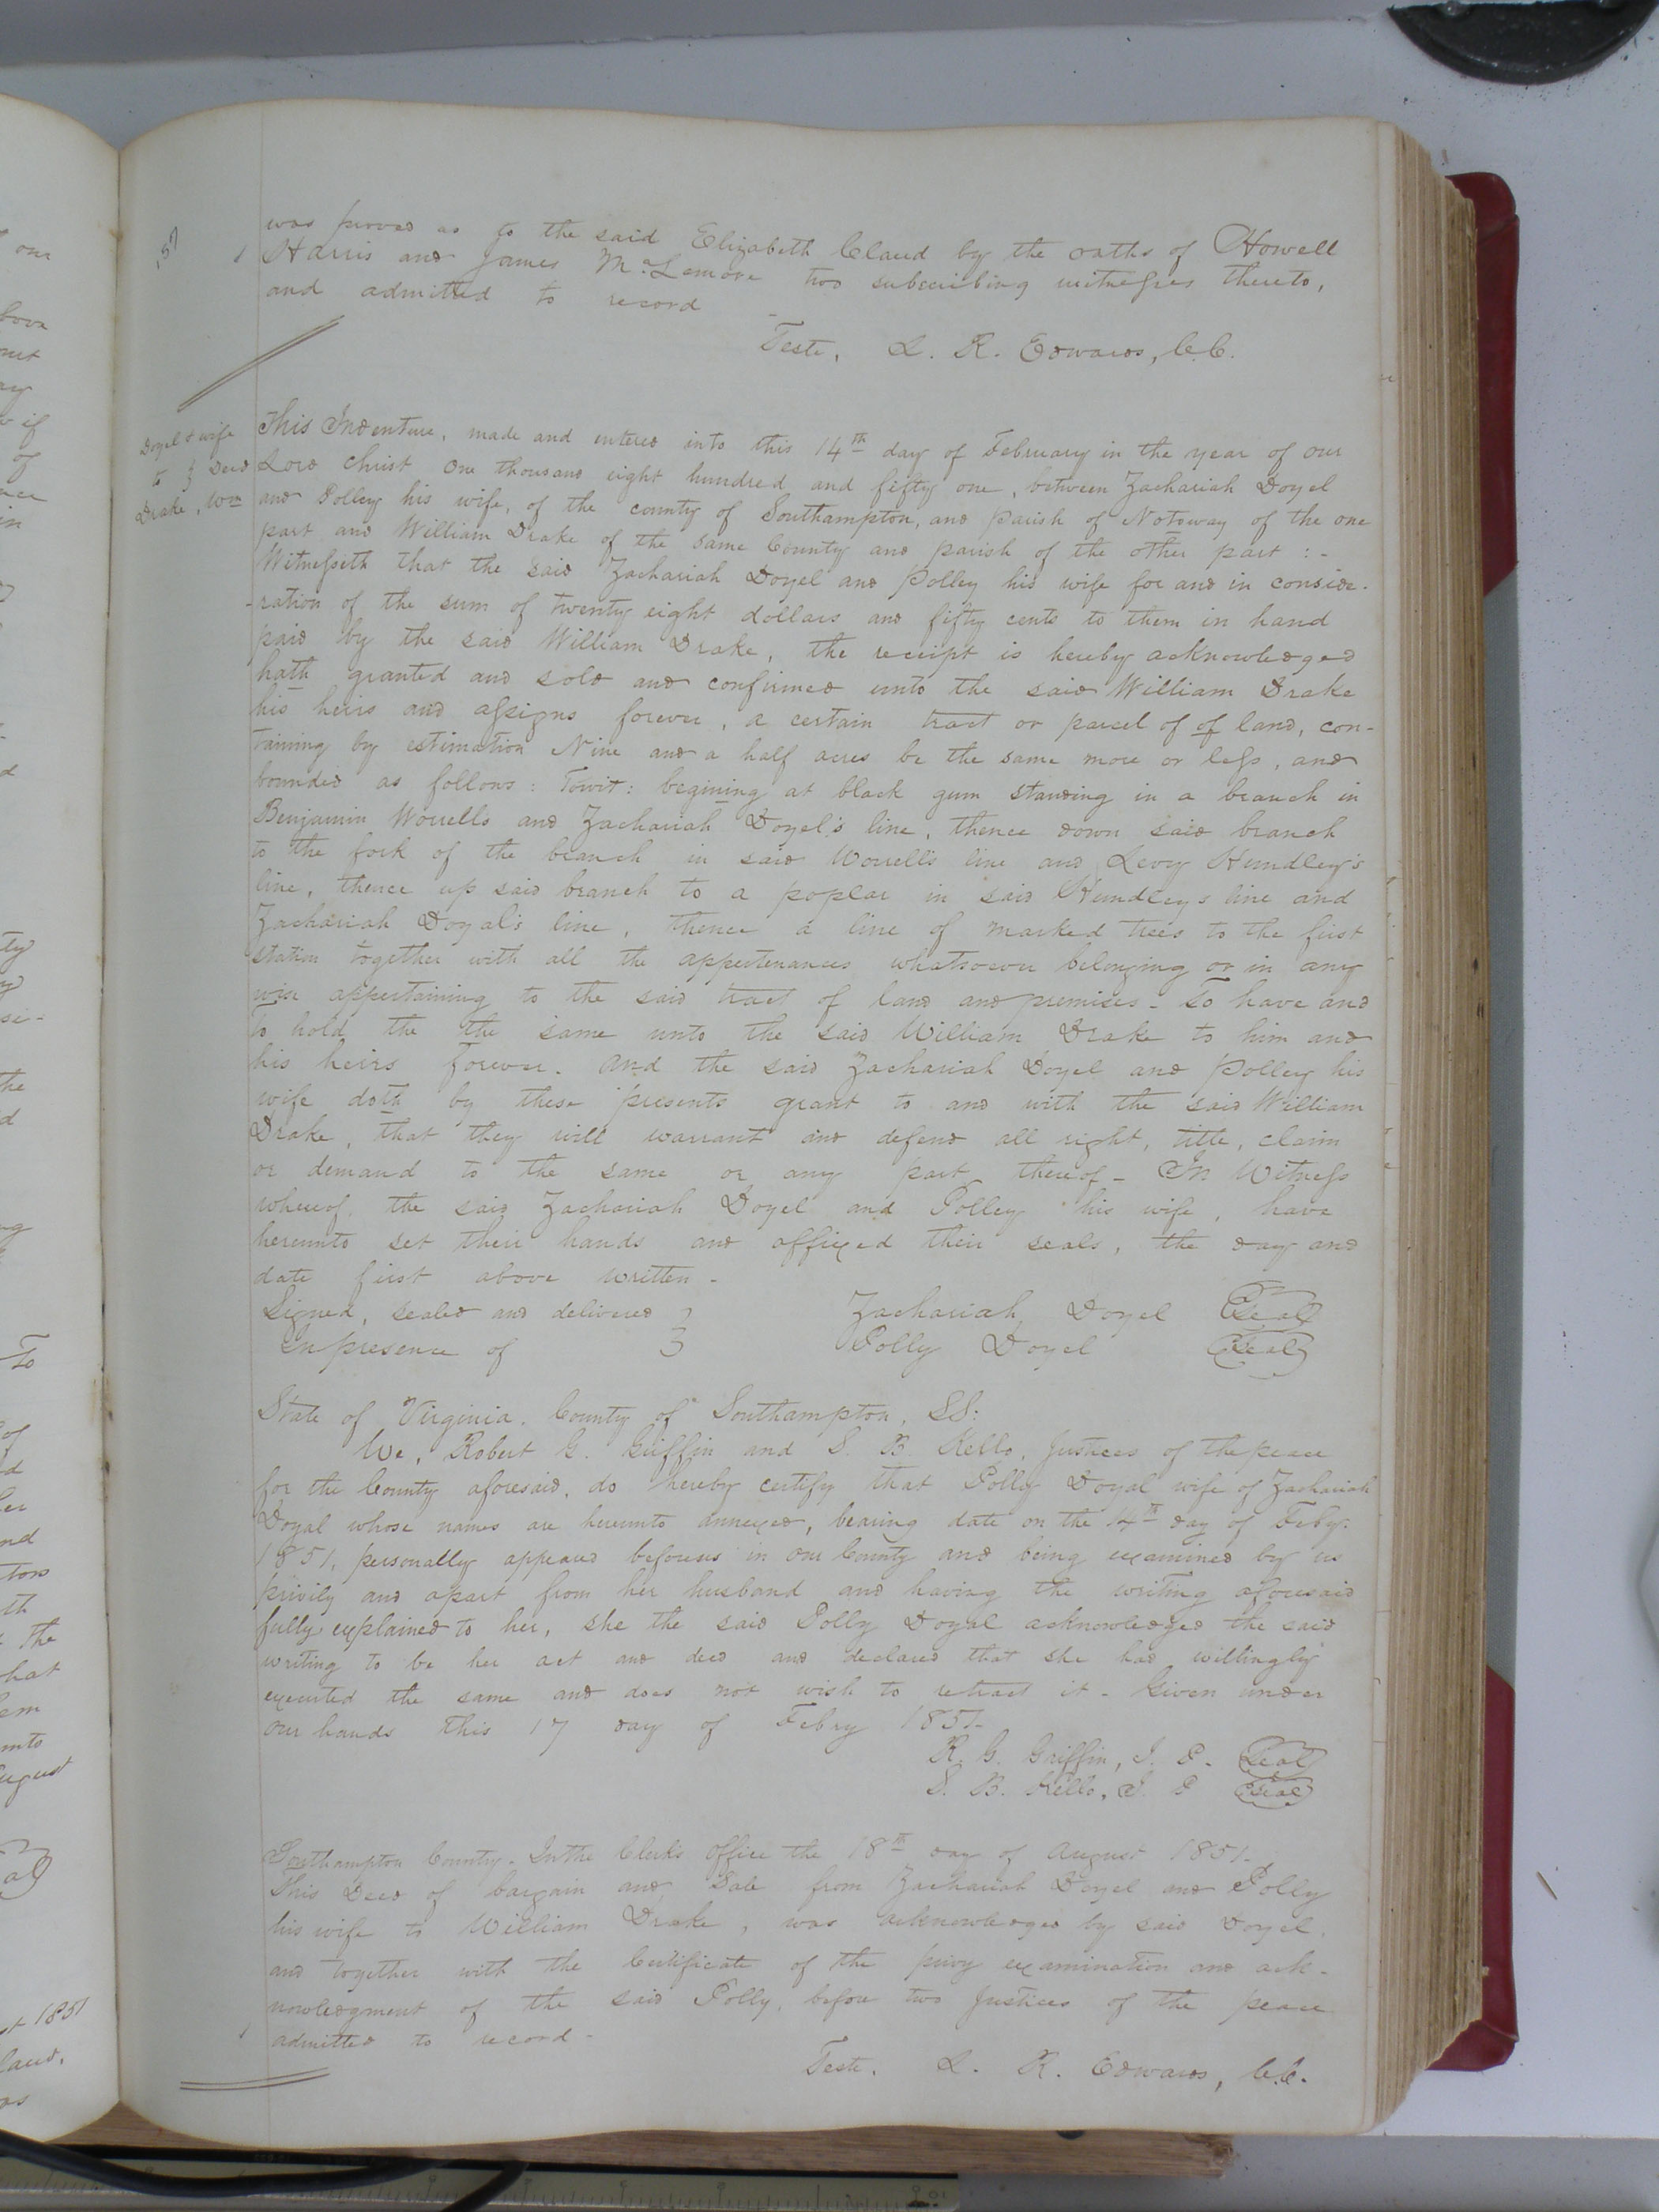 was proved as to the said Elizabeth Claud by the oaths of Howell
Harris and James McLemore two subscribing witnesses thereto,
and admitted to record
Teste, L. R. Edwards, C.C.
Doyel & wife
to } Deed
Drake, Wm
This Indenture, made and entered into this 14th day of February in the year of our
Lord Christ One thousand eight hundred and fifty one, between Zachariah Doyel
and Polley his wife, of the county of Southampton, and parish of Notoway of the one
part and William Drake of the same County and parish of the other part :-
Witnesseth that the said Zachariah Doyel and Polley his wife for and in conside-
-ration of the sum of twenty eight dollars and fifty cents to them in hand
paid by the said William Drake, the receipt is hereby acknowledged
hath granted and sold and confirmed unto the said William Drake
his heirs and assigns forever, a certain tract or parcel of of land, con-
taining by estimation Nine and a half acres be the same more or less, and
bounded as follows: Towit: begining at black gum standing in a branch in
Benjamin Worrells and Zachariah Doyel's line, thence down said branch
to the fork of the branch in said Worrell's line and Levy Hundley's
line, thence up said branch to a poplar in said Hundleys line and
Zachariah Doyal's line, thence a line of marked trees to the first
station together with all the appertenances whatsoever belonging or in any
wise appertaining to the said tract of land and premises - To have and
to hold the the same unto the said William Drake to him and
his heirs forever. And the said Zachariah Doyel and Polley his
wife doth by these presents grant to and with the said William
Drake, that they will warrant and defend all right, title, claim
or demand to the same or any part thereof - In Witness
whereof the said Zachariah Doyel and Polley his wife, have
hereunto set their hands and affixed their seals, the day and
date first above written -
Signed, sealed and delivered }
In presence of }
Zachariah Doyel Seal
Polly Doyel Seal
State of Virginia. County of Southampton, SS:
We, Robert G. Griffin and S. B. Kello, Justices of the peace
for the County aforesaid, do hereby certify that Polly Doyal wife of Zachariah
Doyal whose names are hereunto annexed, bearing date on the 14th day of Feby.
1851, personally appeared before us in our County and being examined by us
privily and apart from her husband and having the writing aforesaid
fully explained to her, she the said Polly Doyal acknowledged the said
writing to be her act and deed and declared that she had willingly
executed the same and does not wish to retract it - Given under
our hands this 17 day of Febry 1851-
R. G. Griffin, J. P. Seal
S. B. Kello, J. P Seal
Southampton County. In the Clerk's Office the 18th day of August 1851-
This Deed of bargain and Sale from Zachariah Doyel and Polly
his wife to William Drake, was acknowledged by said Doyel,
and together with the Certificate of the privy examination and ack-
nowledgment of the said Polly, before two Justices of the peace
admitted to record-
Teste. L. R. Edwards, C.C.